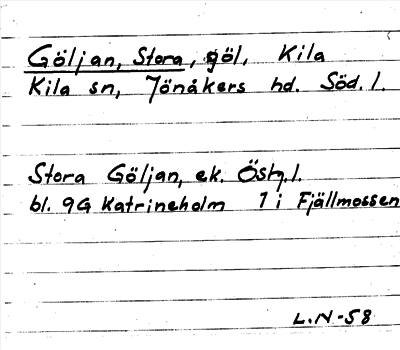 Göljan, Stora, göl, Kila
Kila sn, Jönåkers hd. Söd. l.
Stora Göljan, ek. Östg. l.
bl. 9G Katrineholm 1 i Fjällmossen
L.N-58